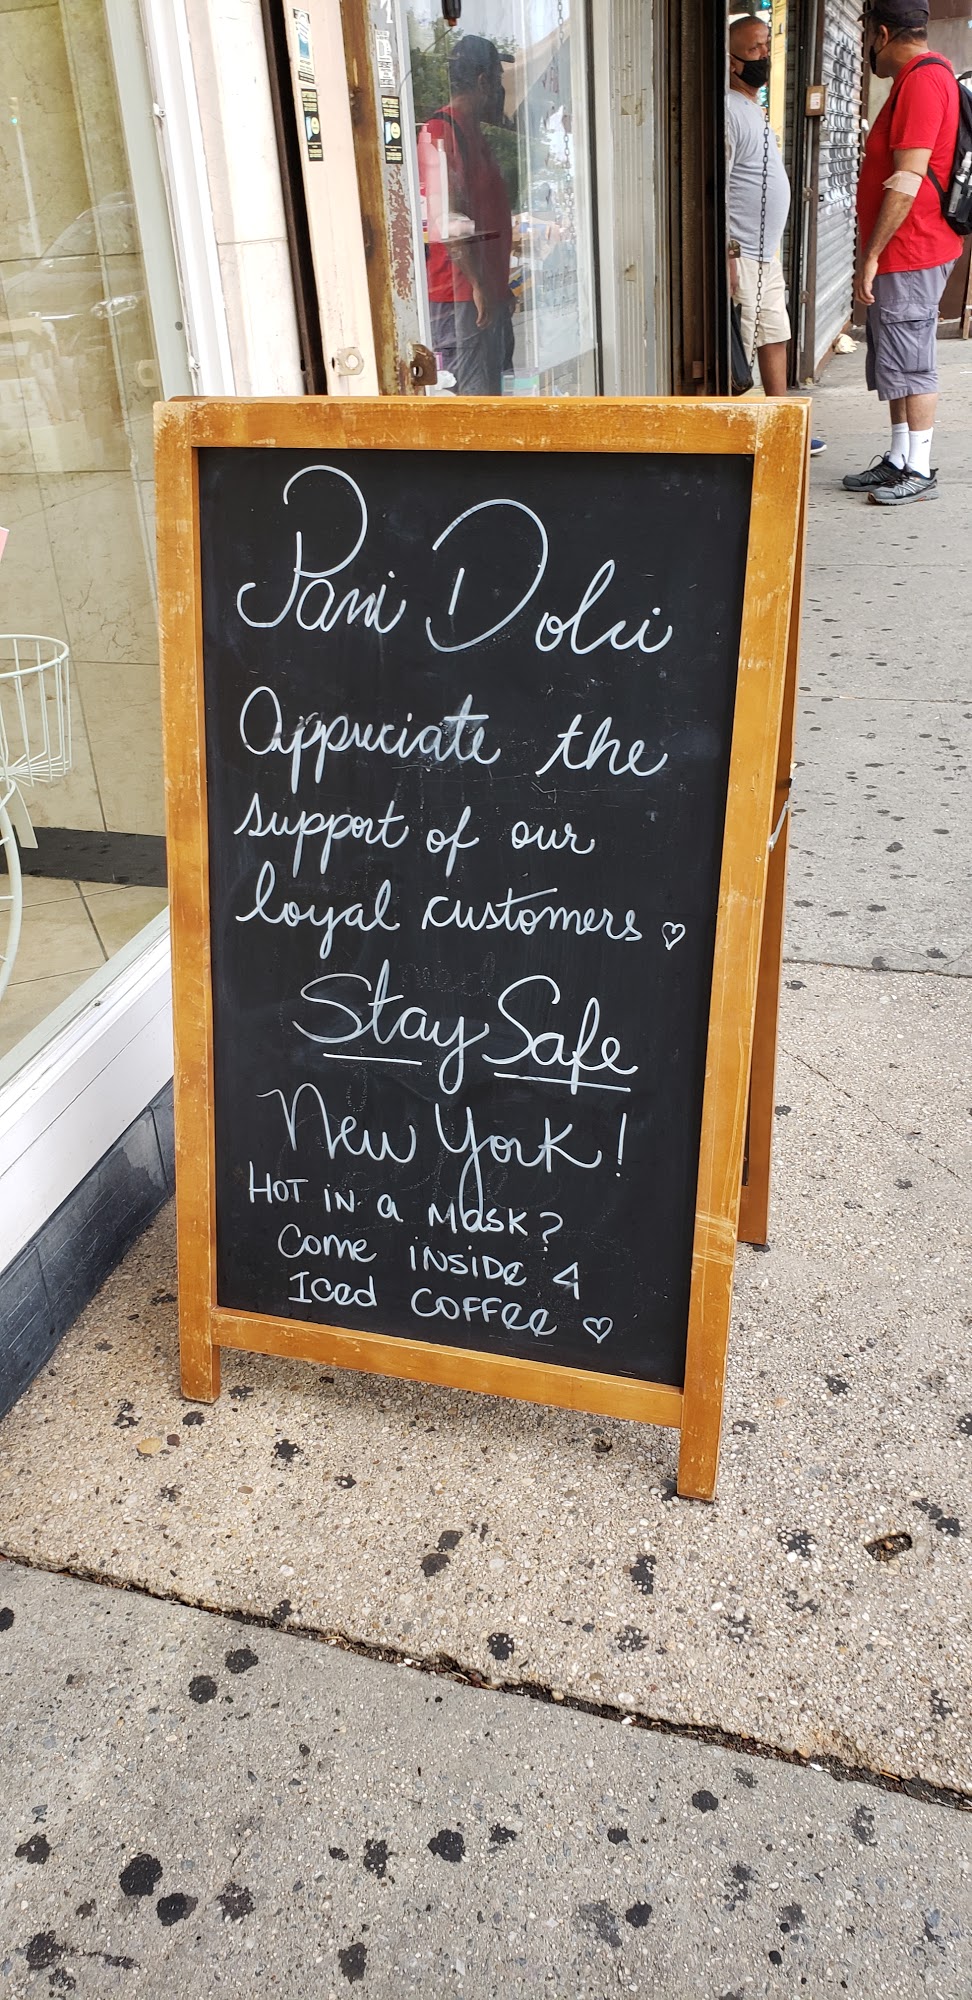 Pani Dolci
Appreciate the
support of our
loyal customers ♡
Stay Safe
New York!
HOT IN a MASK?
Come INSIDE 4
Iced COFFEE ♡